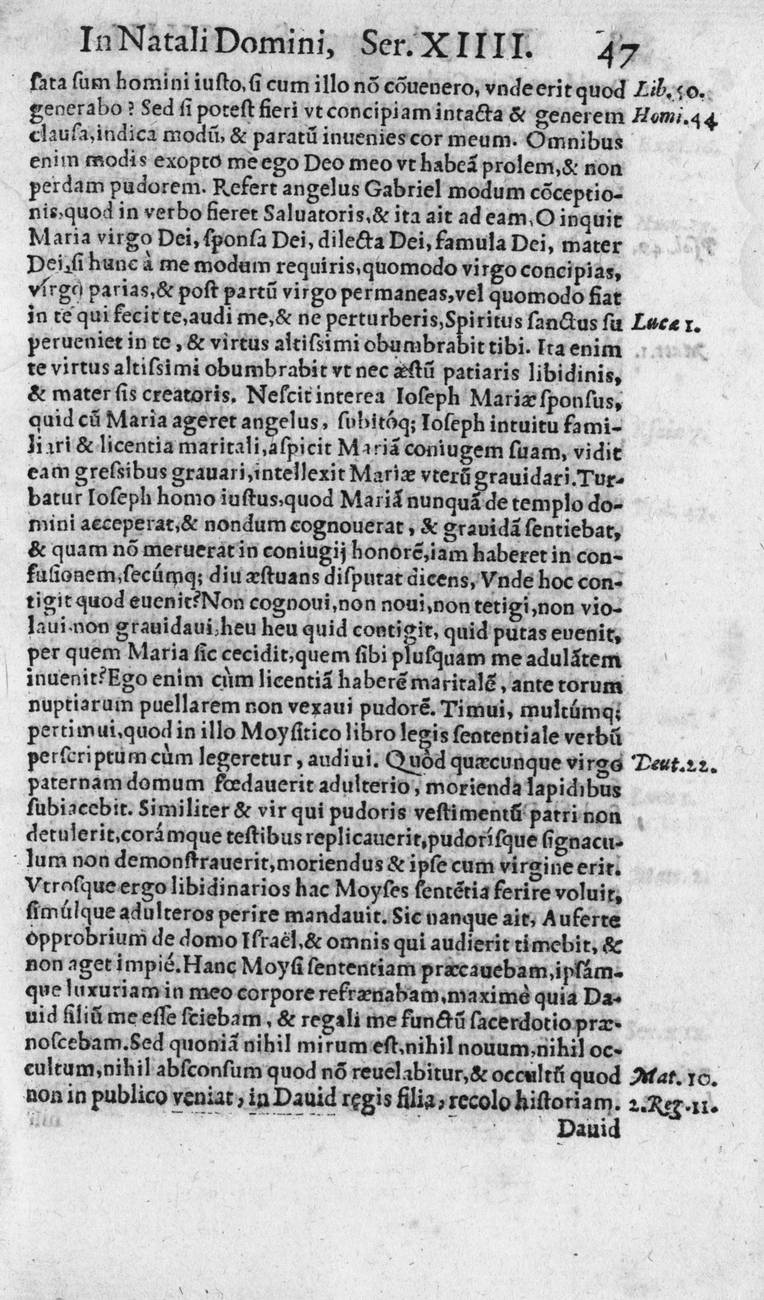 In Natali Domini, Ser. XIIII. 47
ſata ſum homini iuſto, ſi cum illo nõ cõuenero, vnde erit quod Lib. 50.
generabo? Sed ſi poteſt fieri vt concipiam intacta & generem Homi. 44
clauſa, indica modũ, & paratũ inuenies cor meum. Omnibus
enim modis exopto me ego Deo meo vt habeã prolem, & non
perdam pudorem. Refert angelus Gabriel modum cõceptio-
nis, quod in verbo fieret Saluatoris, & ita ait ad eam, O inquit
Maria virgo Dei, ſponſa Dei, dilecta Dei, famula Dei, mater
Dei, ſi hunc à me modum requiris, quomodo virgo concipias,
virgo parias, & poſt partũ virgo permaneas, vel quomodo fiat
in te qui fecit te, audi me, & ne perturberis, Spiritus ſanctus ſu Lucæ 1.
perueniet in te, & virtus altiſsimi obumbrabit tibi. Ita enim
te virtus altiſsimi obumbrabit vt nec æſtũ patiaris libidinis,
& mater ſis creatoris. Neſcit interea Ioſeph Mariæ ſponſus,
quid cũ Maria ageret angelus, ſubitóq; Ioſeph intuitu fami-
liari & licentia maritali, aſpicit Mariã coniugem ſuam, vidit
eam greſsibus grauari, intellexit Mariæ vterũ grauidari. Tur-
batur Ioſeph homo iuſtus, quod Mariã nunquã de templo do-
mini acceperat, & nondum cognouerat, & grauidã ſentiebat,
& quam nõ meruerat in coniugij honorẽ, iam haberet in con-
fuſionem, ſecúmq; diu æſtuans diſputat dicens, Vnde hoc con-
tigit quod euenit? Non cognoui, non noui, non tetigi, non vio-
laui, non grauidaui, heu heu quid contigit, quid putas euenit,
per quem Maria ſic cecidit, quem ſibi pluſquam me adulãtem
inuenit? Ego enim cùm licentiã haberẽ maritalẽ, ante torum
nuptiarum puellarem non vexaui pudorẽ. Timui, multúmq;
pertimui, quod in illo Moyſitico libro legis ſententiale verbũ
perſcriptum cùm legeretur, audiui. Quòd quæcunque virgo Deut. 22.
paternam domum fœdauerit adulterio, morienda lapidibus
ſubiacebit. Similiter & vir qui pudoris veſtimentũ patri non
detulerit, corámque teſtibus replicauerit, pudoríſque ſignacu-
lum non demonſtrauerit, moriendus & ipſe cum virgine erit.
Vtroſque ergo libidinarios hac Moyſes ſentẽtia ferire voluit,
ſimúlque adulteros perire mandauit. Sic nanque ait, Auferte
opprobrium de domo Iſraël, & omnis qui audierit timebit, &
non aget impié. Hanc Moyſi ſententiam præcauebam, ipſám-
que luxuriam in meo corpore refrænabam, maximè quia Da-
uid filiũ me eſſe ſciebam, & regali me functũ ſacerdotio præ-
noſcebam. Sed quoniã nihil mirum eſt, nihil nouum, nihil oc-
cultum, nihil abſconſum quod nõ reuelabitur, & occultũ quod Mat. 10.
non in publico veniat, in Dauid regis filia, recolo hiſtoriam. 2. Reg. 11.
Dauid